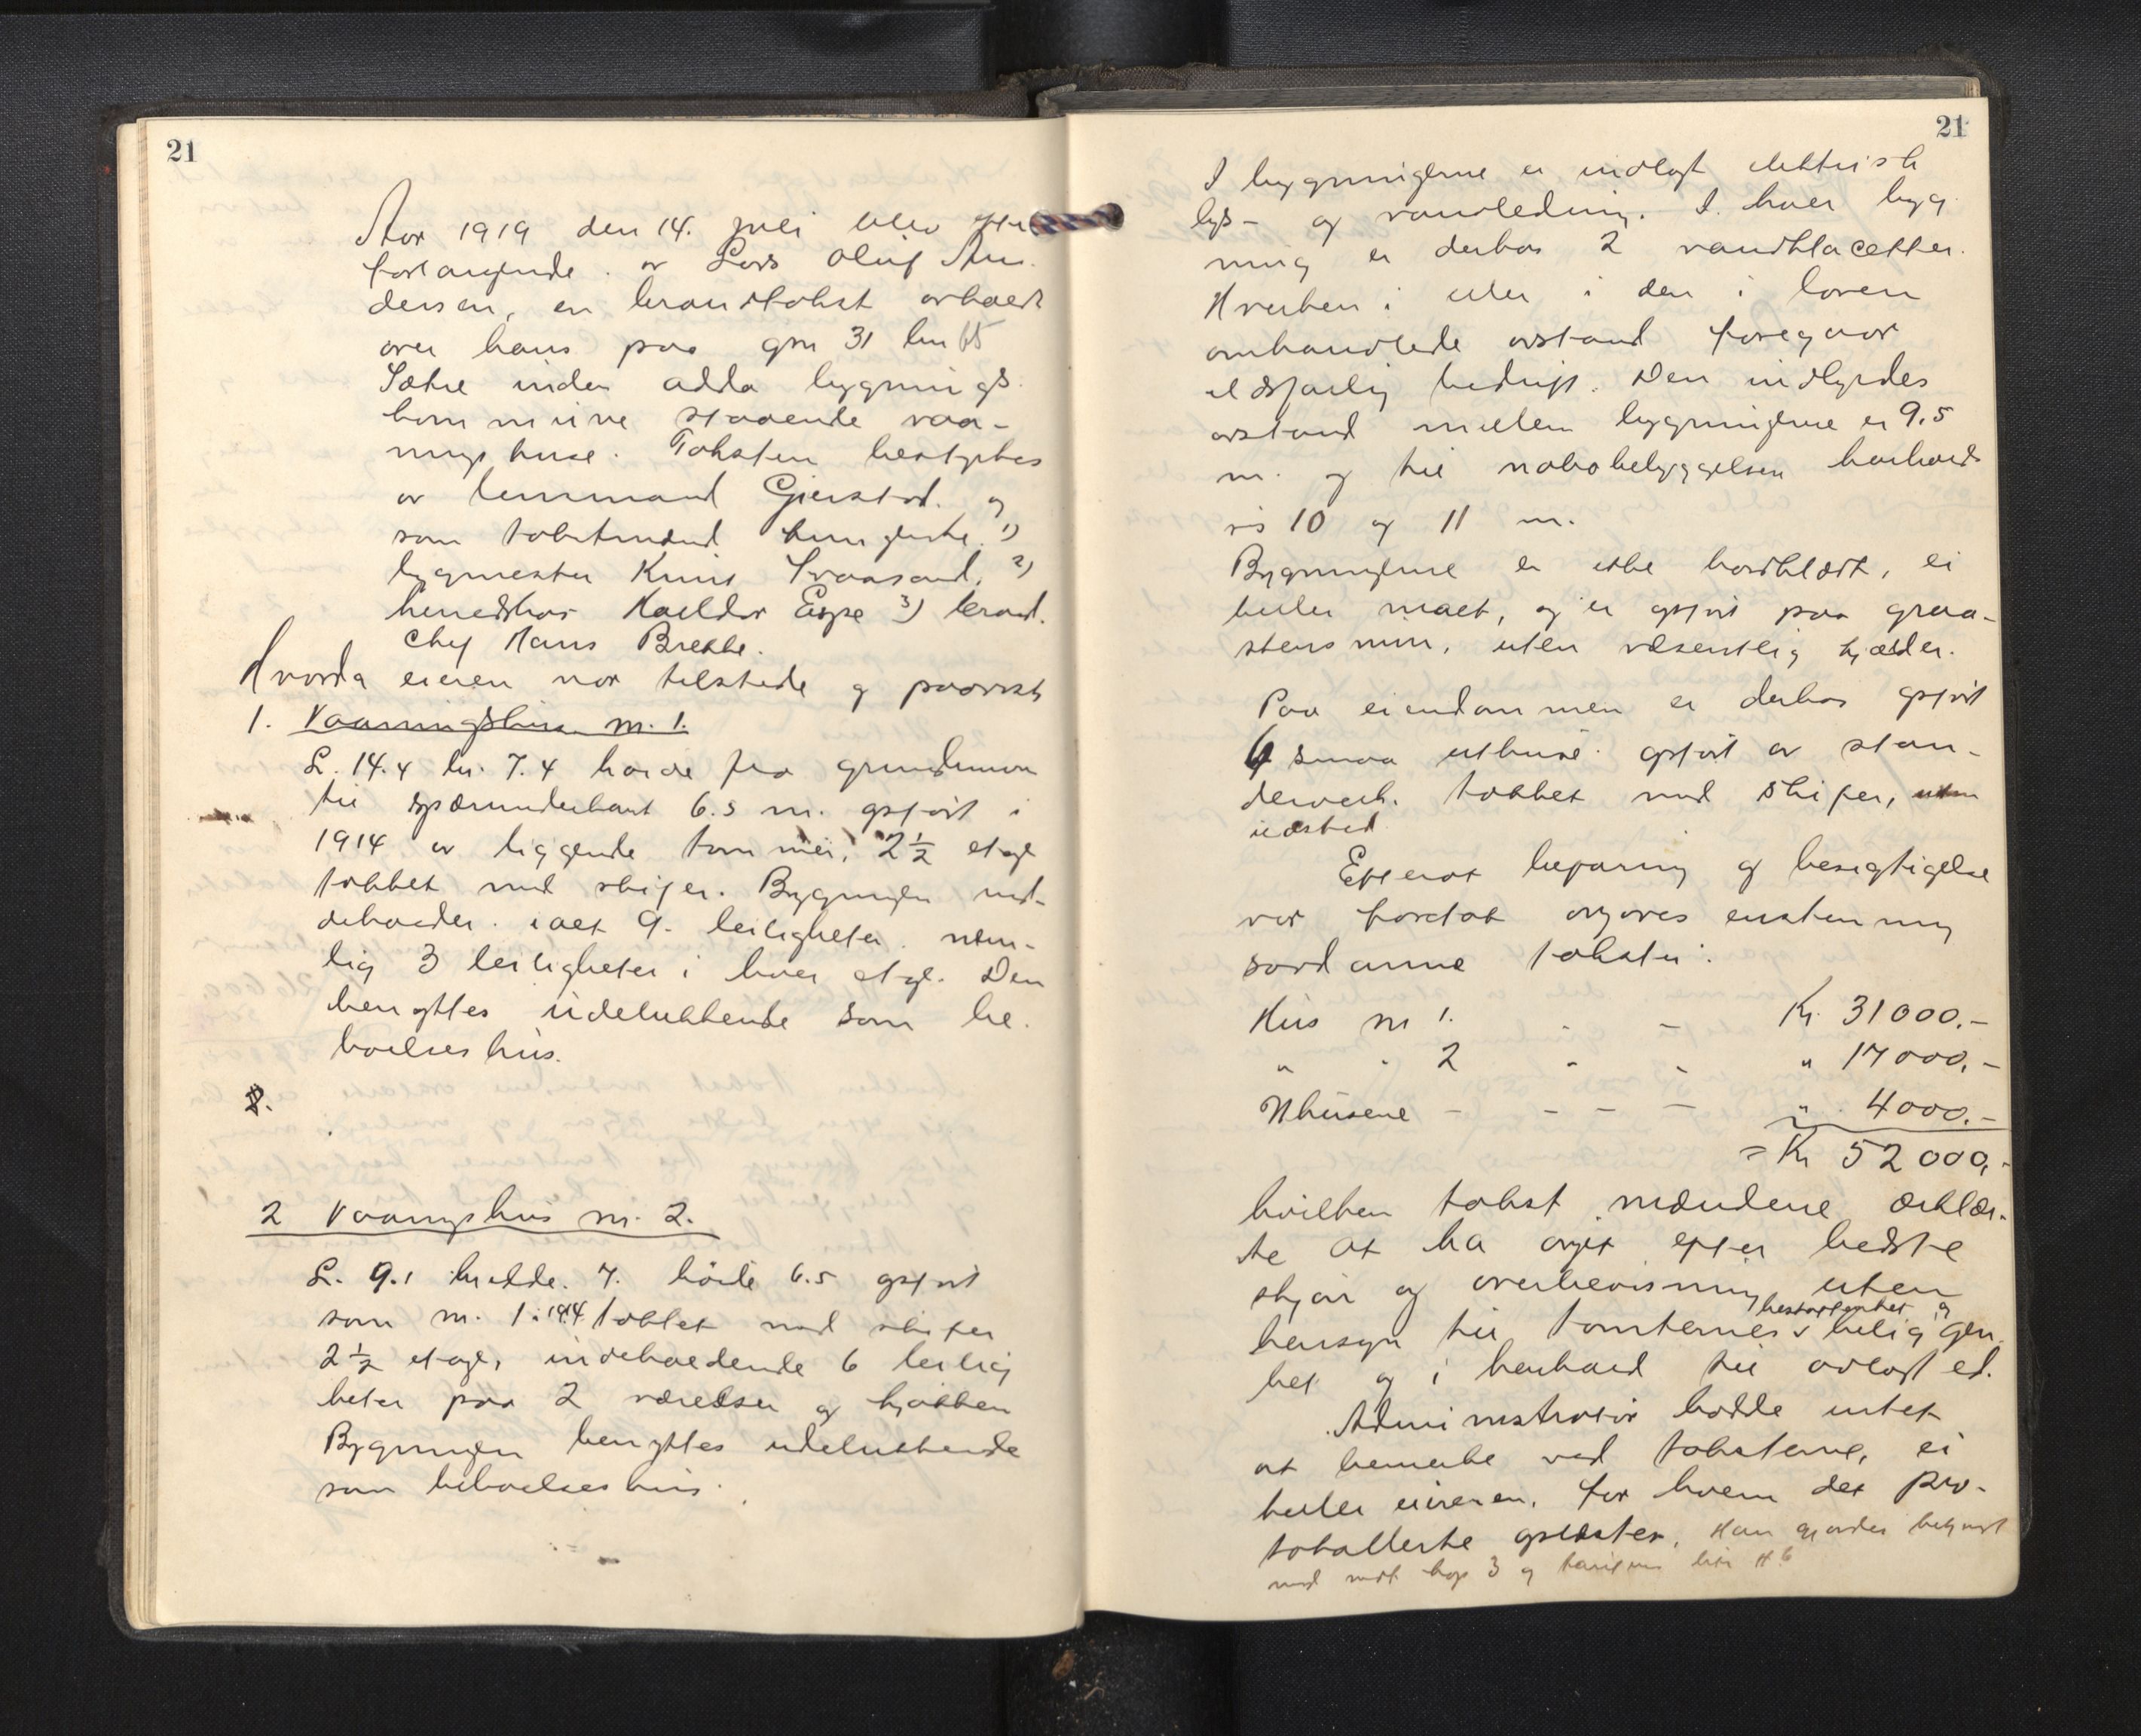 21
Aar 1919 den 14. juli blev efter
forlangende av Lars Oluf An-
dersen, en brandtakst avholdt
over hans paa gnr 31 bnr 65
Sætre inden Odda bygnings
kommune staaende vaa-
ningshuse. Taksten bestyrtes
av lensmand Gjerstad. og
som takstmænd fungerte. 1)
bygmester Knut Traasavd, 2)
herredskas Halldor Espe 3) brand.
chef Hans Brekke.
Hvorda eieren var tilstede og paavist
1. Vaaningshus nr. 1.
L. 14.4 br. 7.4 høide fra grundmur
til spærunderkant 6.5 m. opført i
1914 av liggende tømmer, 2½ etage
tækket med skifer. Bygningen ind-
deholder ialt 9. leiligheter. nem-
lig 3 leiligheter i hver etage. Den
benyttes udelukkende som be-
boelseshus.
2.
2 Vaaningshus nr. 2.
L. 9.1 bredde. 7. höide 6.5 opført
som nr. 1. i 1914 tækket med skifer
2½ etage, indeholdende 6 leilig
heter paa 2 værelser og kjøkken
Bygningen benyttes udelukkende
som beboelseshus.
21
I bygningerne er indlagt elektrisk
lys- og vandledning. I hver byg
ning er derhos 2 vandklosetter.
Hverken i eller i den i loven
omhandlede avstand foregaar
ildsfarlig bedrift. Den indbyrdes
avstand mellem bygningerne er 9,5
m. og til nabobebyggelsen henholds
vis 10 og 11 m.
Bygningerne er ikke bordklædt, ei
heller malt, og er opført paa graa-
stensmur, uten væsentlig kjælder.
Paa eiendommen er derhos opført
4 smaa uthuse opført av stan-
derverk. tækket med skifer, uten
ildsted.
Efterat befaring og besigtigelse
var foretat avgaves enstemmig
saadanne takster:
Hus nr 1. - - Kr. 31000.-
" " 2 - - " 17000.-
Uthusene - - - - " 4000.-
= Kr 52000.-
hvilken takst mændene erklær-
te at ha avgit efter bedste
skjøn og overbevisning uten
hensyn til tomternes beskaffenhet og belig gen
het og i henhold til avlagt ed.
Administrator hadde intet
at bemerke ved taksterne, ei
heller eieren, for hvem det pro-
tokollerte oplæstes. Han gjordes bekjendt
med